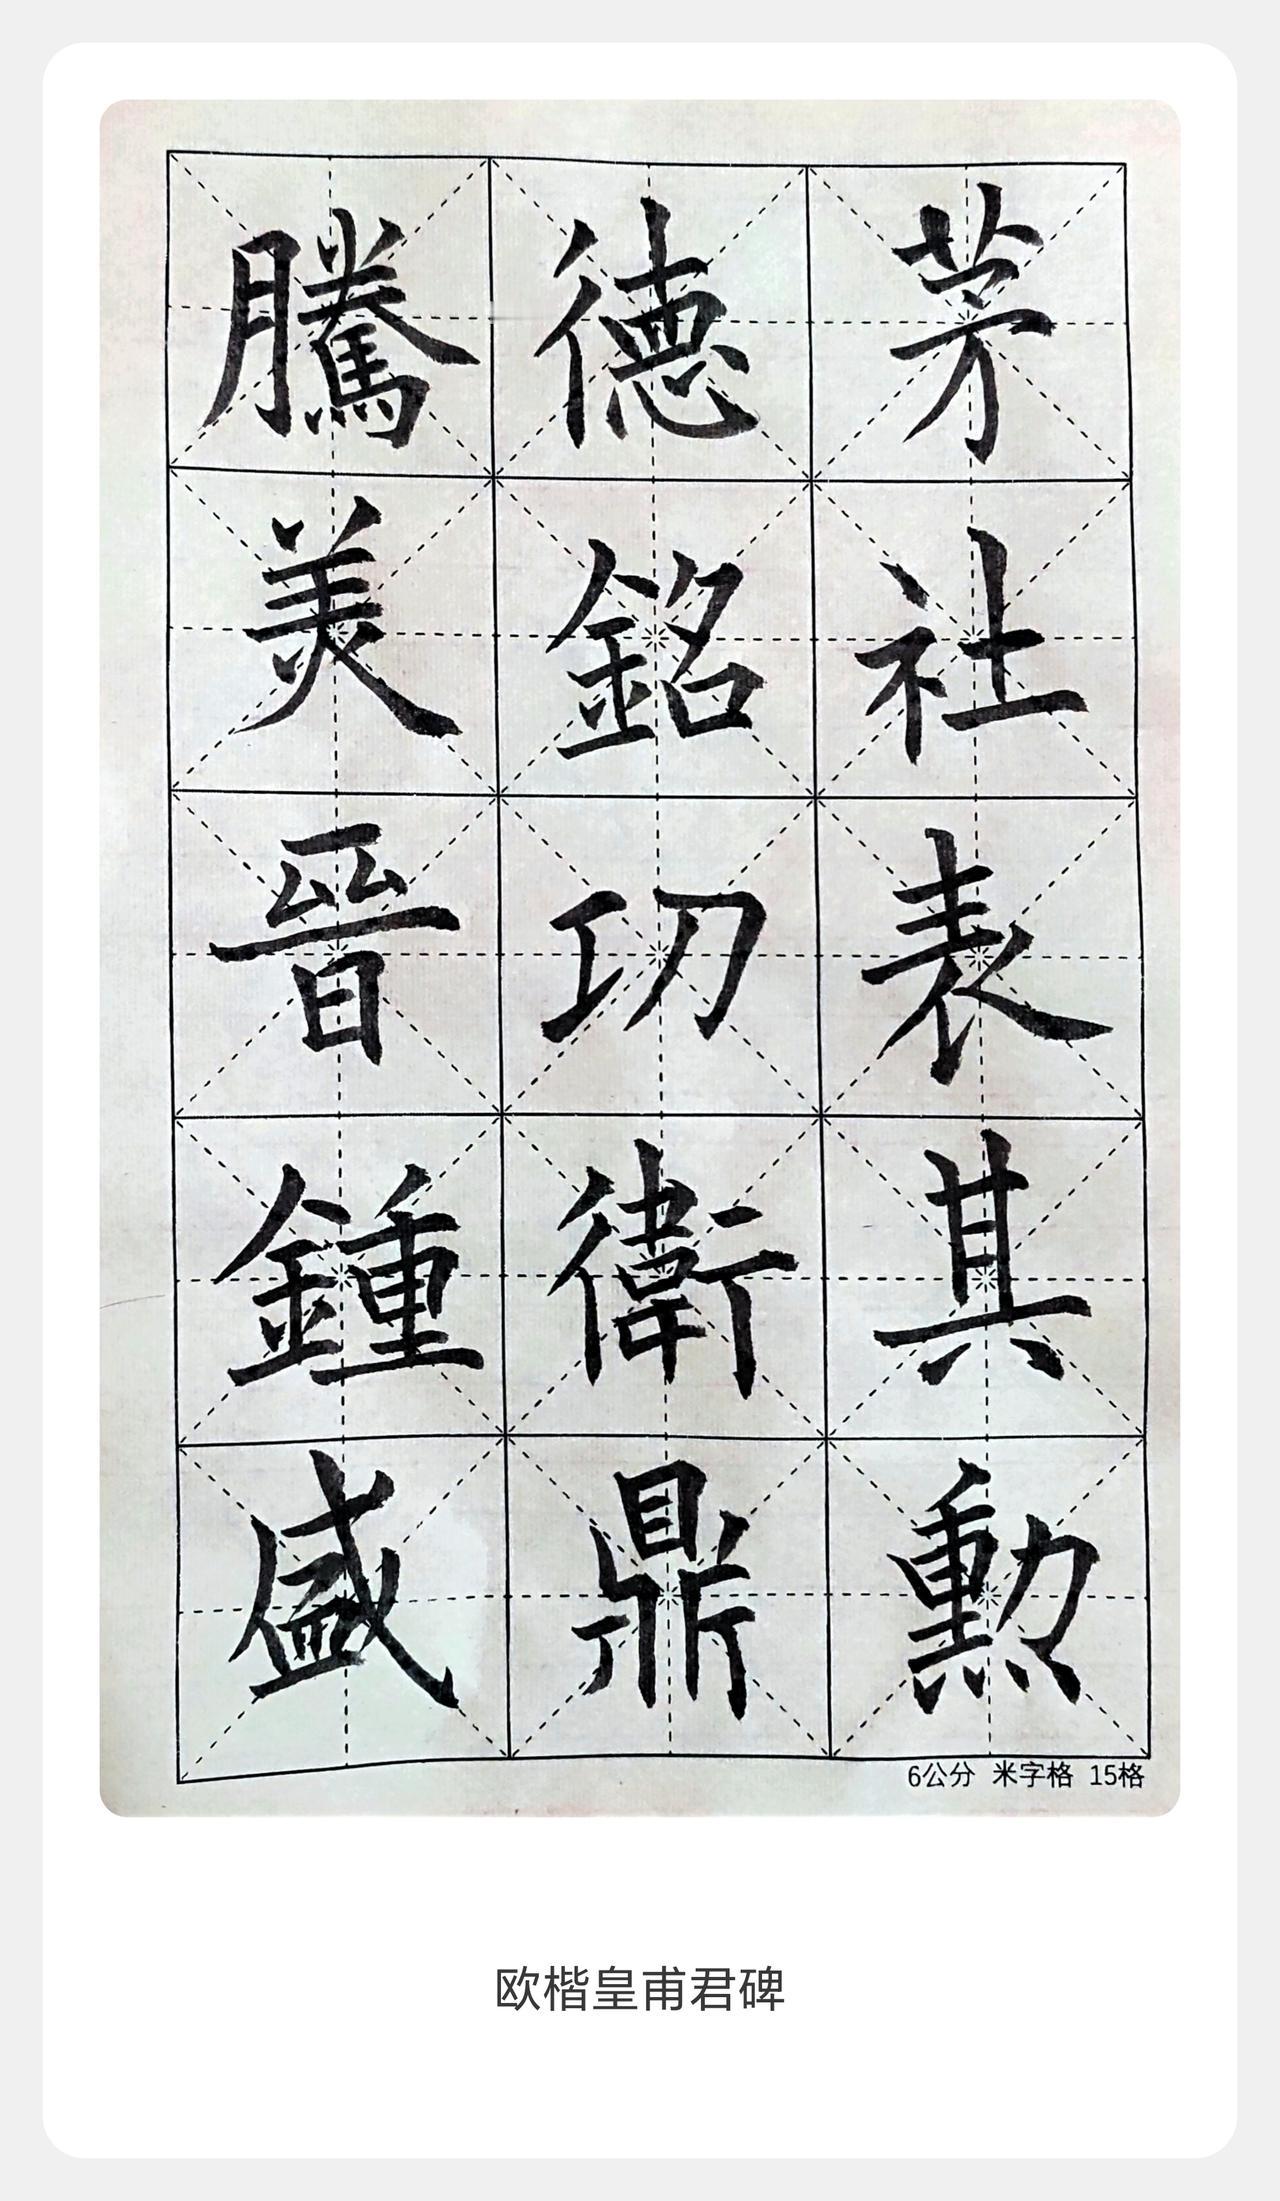 茅社表其勲
德銘功衛鼎
騰美晉鍾盛
6公分 米字格 15格
欧楷皇甫君碑